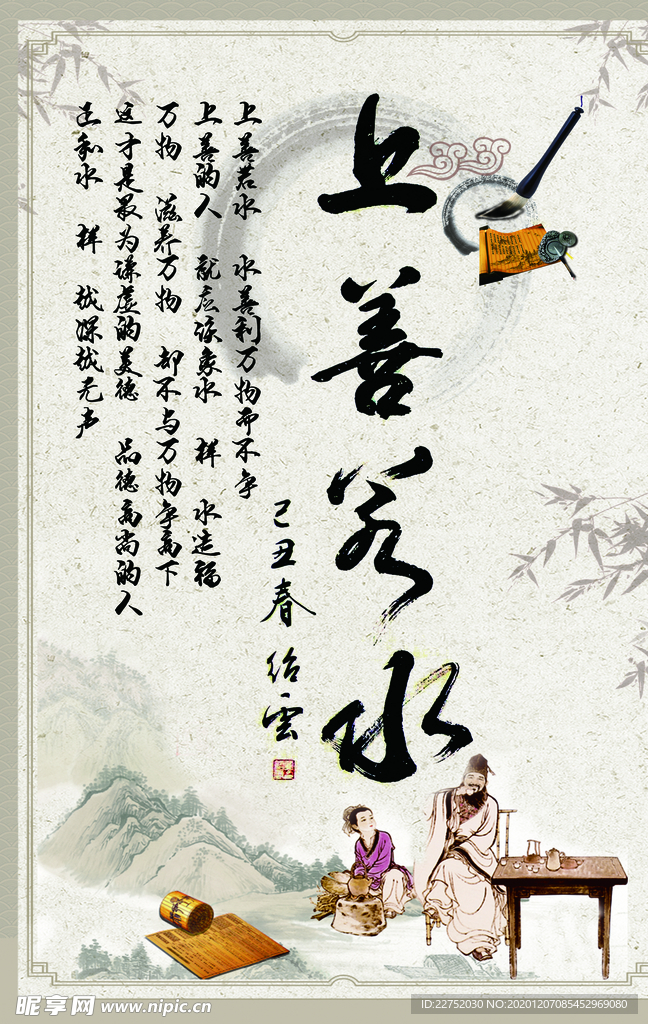 上善若水
上善若水 水善利万物而不争
上善的人 就应该象水 样 水造福
万物 滋养万物 却不与万物争高下
这才是最为谦虚的美德 品德高尚的人
正和水 样 越深越无声
己丑春 绍雲
昵享网 www.nipic.cn
ID:22752030 NO:20201207085452969080